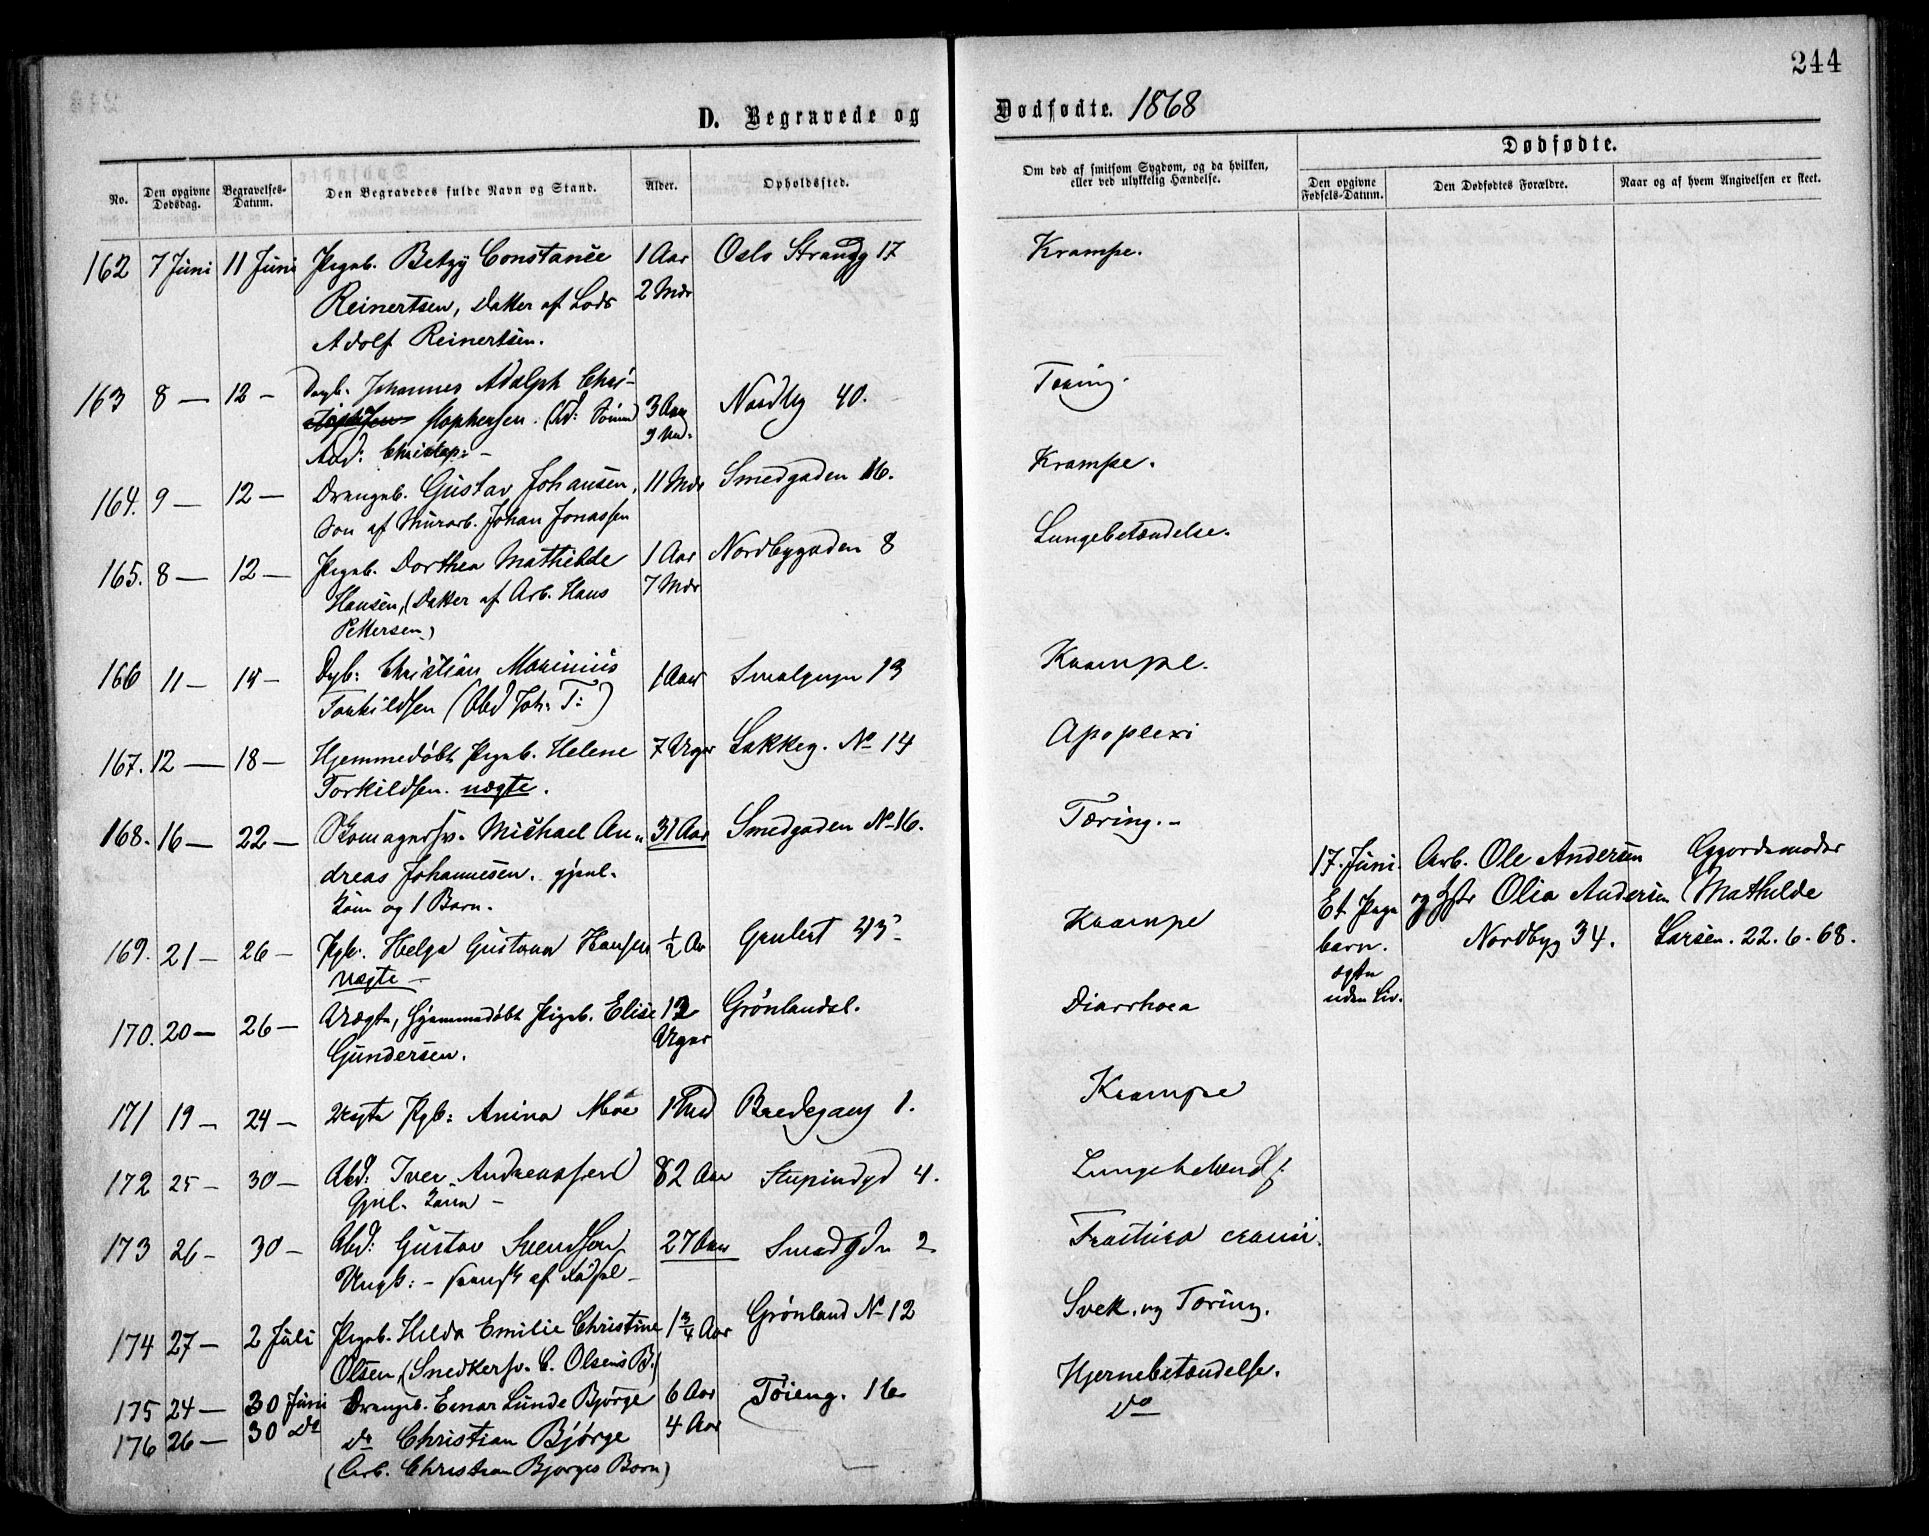 244
D. Begravede og Dødfødte. 1868
Dødfødte.
No. Den opgivne Dødsdag. Begravelses-Datum. Den Begravedes fulde Navn og Stand. Alder. Opholdssted. Om død af smitsom Sygdom, og da hvilken, eller ved ulykkelig Hændelse. Den opgivne Fødsels-Datum. Den Dødfødtes Forældre. Naar og af hvem Angivelsen er skeet.
162 7 Juni 11 Juni Pigeb. Betzy Constance 1 Aar Oslo Strandg 17 Krampe.
Reinertsen, Datter af Lods 2 Mdr
Adolf Reinertsen.
163 8 — 12 — Johannes Adolph Chri- 3 Aar Nordbg 40. Tæring.
stophersen. 9 Md.
Christop: —
164. 9 — 12 — Drengeb. Gustav Johansen, 11 Mdr Smedgaden 16. Krampe.
Søn af Murarb. Johan Jonassen
165. 8 — 12 — Pigeb. Dorthea Mathilde 1 Aar Nordbygaden 8 Lungebetændelse.
Hansen, (Datter af Arb. Hans 7 Mdr
Pettersen)
166 11 — 15 — Dgb: Christian Marinius 1 Aar Smalgngn 13 Krampe.
Torkildsen (Abd Joh. T:)
167. 12 — 18 — Hjemmedøbt Pigeb. Helene 7 Uger Lakkeg. No 14 Apoplexi
Torkildsen. uægte.
168. 16 — 22 — Skomagersv. Michael An- 31 Aar Smedgaden No 16. Tæring. —
dreas Johannesen. gjenl.
Kone og 1 Barn.
17. Juni. Arb. Ole Andersen Gjordemoder
Et Pige og Hstr Olia Andersen Mathilde
barn. Nordbyg 34. Larsen. 22. 6. 68.
ægte
uden Liv.
169. 21 — 26 — Pgb. Helga Gustava Hansen ½ Aar 43 Krampe
uægte —
170. 20 — 26 — Uægte, Hjemmedøbt Pigeb. Elise 12 Grönlandsl. Diarrhoea
Gundersen. Uger
171 19 — 24 — Uægte Pgb: Anina Moe 1 Md Bredegang 1. Krampe
172 25 — 30 — Abd: Iver Andreassen 82 Aar Stupindgd 4. Lungebetænds.
Gjnl. Kone —
173 26 — 30 — Abd: Gustav Svendsen 27 Aar Smedgdn 2 Fractura cranii.
Ungk: — svensk af Fødsel —
174 27 — 2 Juli Pigeb. Hilda Emilie Christine 1¾ Aar Grönland No 12 Svek. og Tæring.
Olsen, (Snedkersv. C. Olsens B.)
175 24 — 30 Juni Drengeb. Einar Lunde Bjørge 6 Aar Töieng. 16 Hjernebetændelse.
176 26 — 30 Do Do Christian Bjørge 4 Aar Do
(Arb. Christian Bjørges Børn)